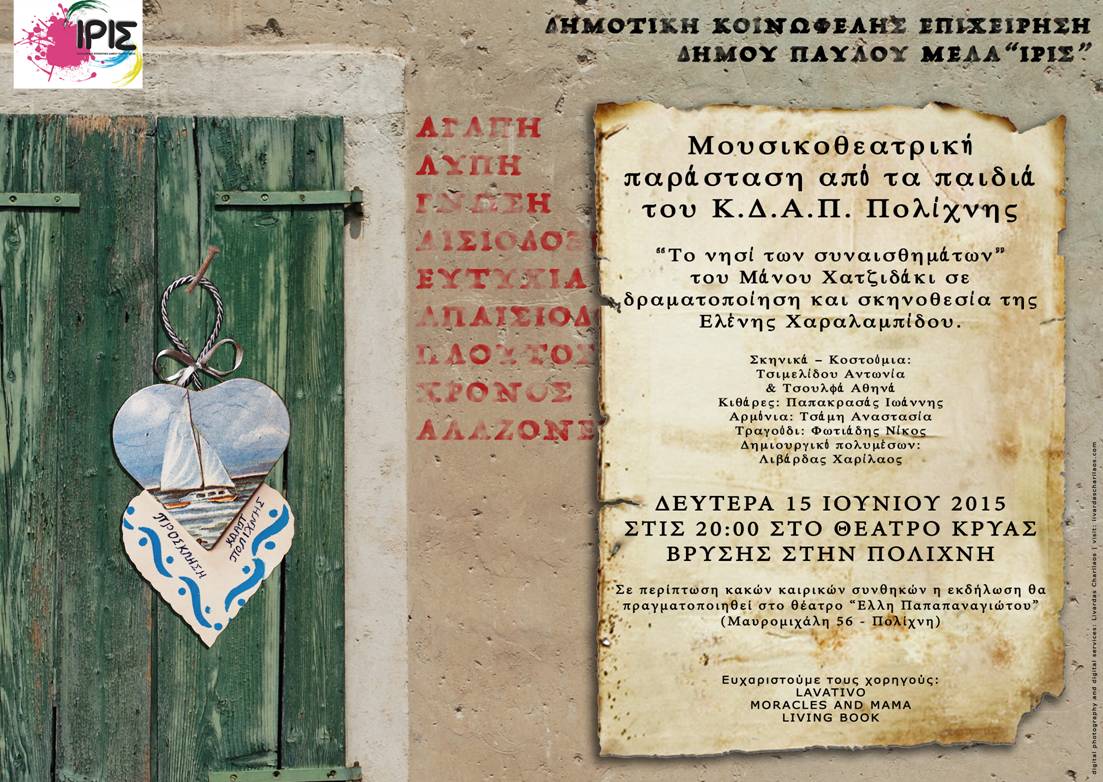 ΙΡΙΣ
ΔΗΜΟΤΙΚΗ ΚΟΙΝΩΦΕΛΗΣ ΕΠΙΧΕΙΡΗΣΗ
ΔΗΜΟΥ ΠΑΥΛΟΥ ΜΕΛΑ “ΙΡΙΣ”
ΑΓΑΠΗ
ΛΥΠΗ
ΓΝΩΣΗ
ΑΙΣΙΟΔΟΞ
ΕΥΤΥΧΙΑ
ΑΠΑΙΣΙΟΔ
ΠΛΟΥΤΟΣ
ΧΡΟΝΟΣ
ΑΛΑΖΟΝΕ
Μουσικοθεατρική
παράσταση από τα παιδιά
του Κ.Δ.Α.Π. Πολίχνης
“Το νησί των συναισθημάτων”
του Μάνου Χατζιδάκι σε
δραματοποίηση και σκηνοθεσία της
Ελένης Χαραλαμπίδου.
Σκηνικά – Κοστούμια:
Τσιμελίδου Αντωνία
& Τσουλφά Αθηνά
Κιθάρες: Παπακρασάς Ιωάννης
Αρμόνια: Τσάμη Αναστασία
Τραγούδι: Φωτιάδης Νίκος
Δημιουργικό πολυμέσων:
Λιβάρδας Χαρίλαος
ΔΕΥΤΕΡΑ 15 ΙΟΥΝΙΟΥ 2015
ΣΤΙΣ 20:00 ΣΤΟ ΘΕΑΤΡΟ ΚΡΥΑΣ
ΒΡΥΣΗΣ ΣΤΗΝ ΠΟΛΙΧΝΗ
Σε περίπτωση κακών καιρικών συνθηκών η εκδήλωση θα
πραγματοποιηθεί στο θέατρο “Ελλη Παπαπαναγιώτου”
(Μαυρομιχάλη 56 - Πολίχνη)
Ευχαριστούμε τους χορηγούς:
LAVATIVO
MORACLES AND MAMA
LIVING BOOK
ΠΡΟΣΚΛΗΣΗ
ΚΔΑΠ
ΠΟΛΙΧΝΗΣ
digital photography and digital services: Livardas Charilaos | visit: livardascharilaos.com